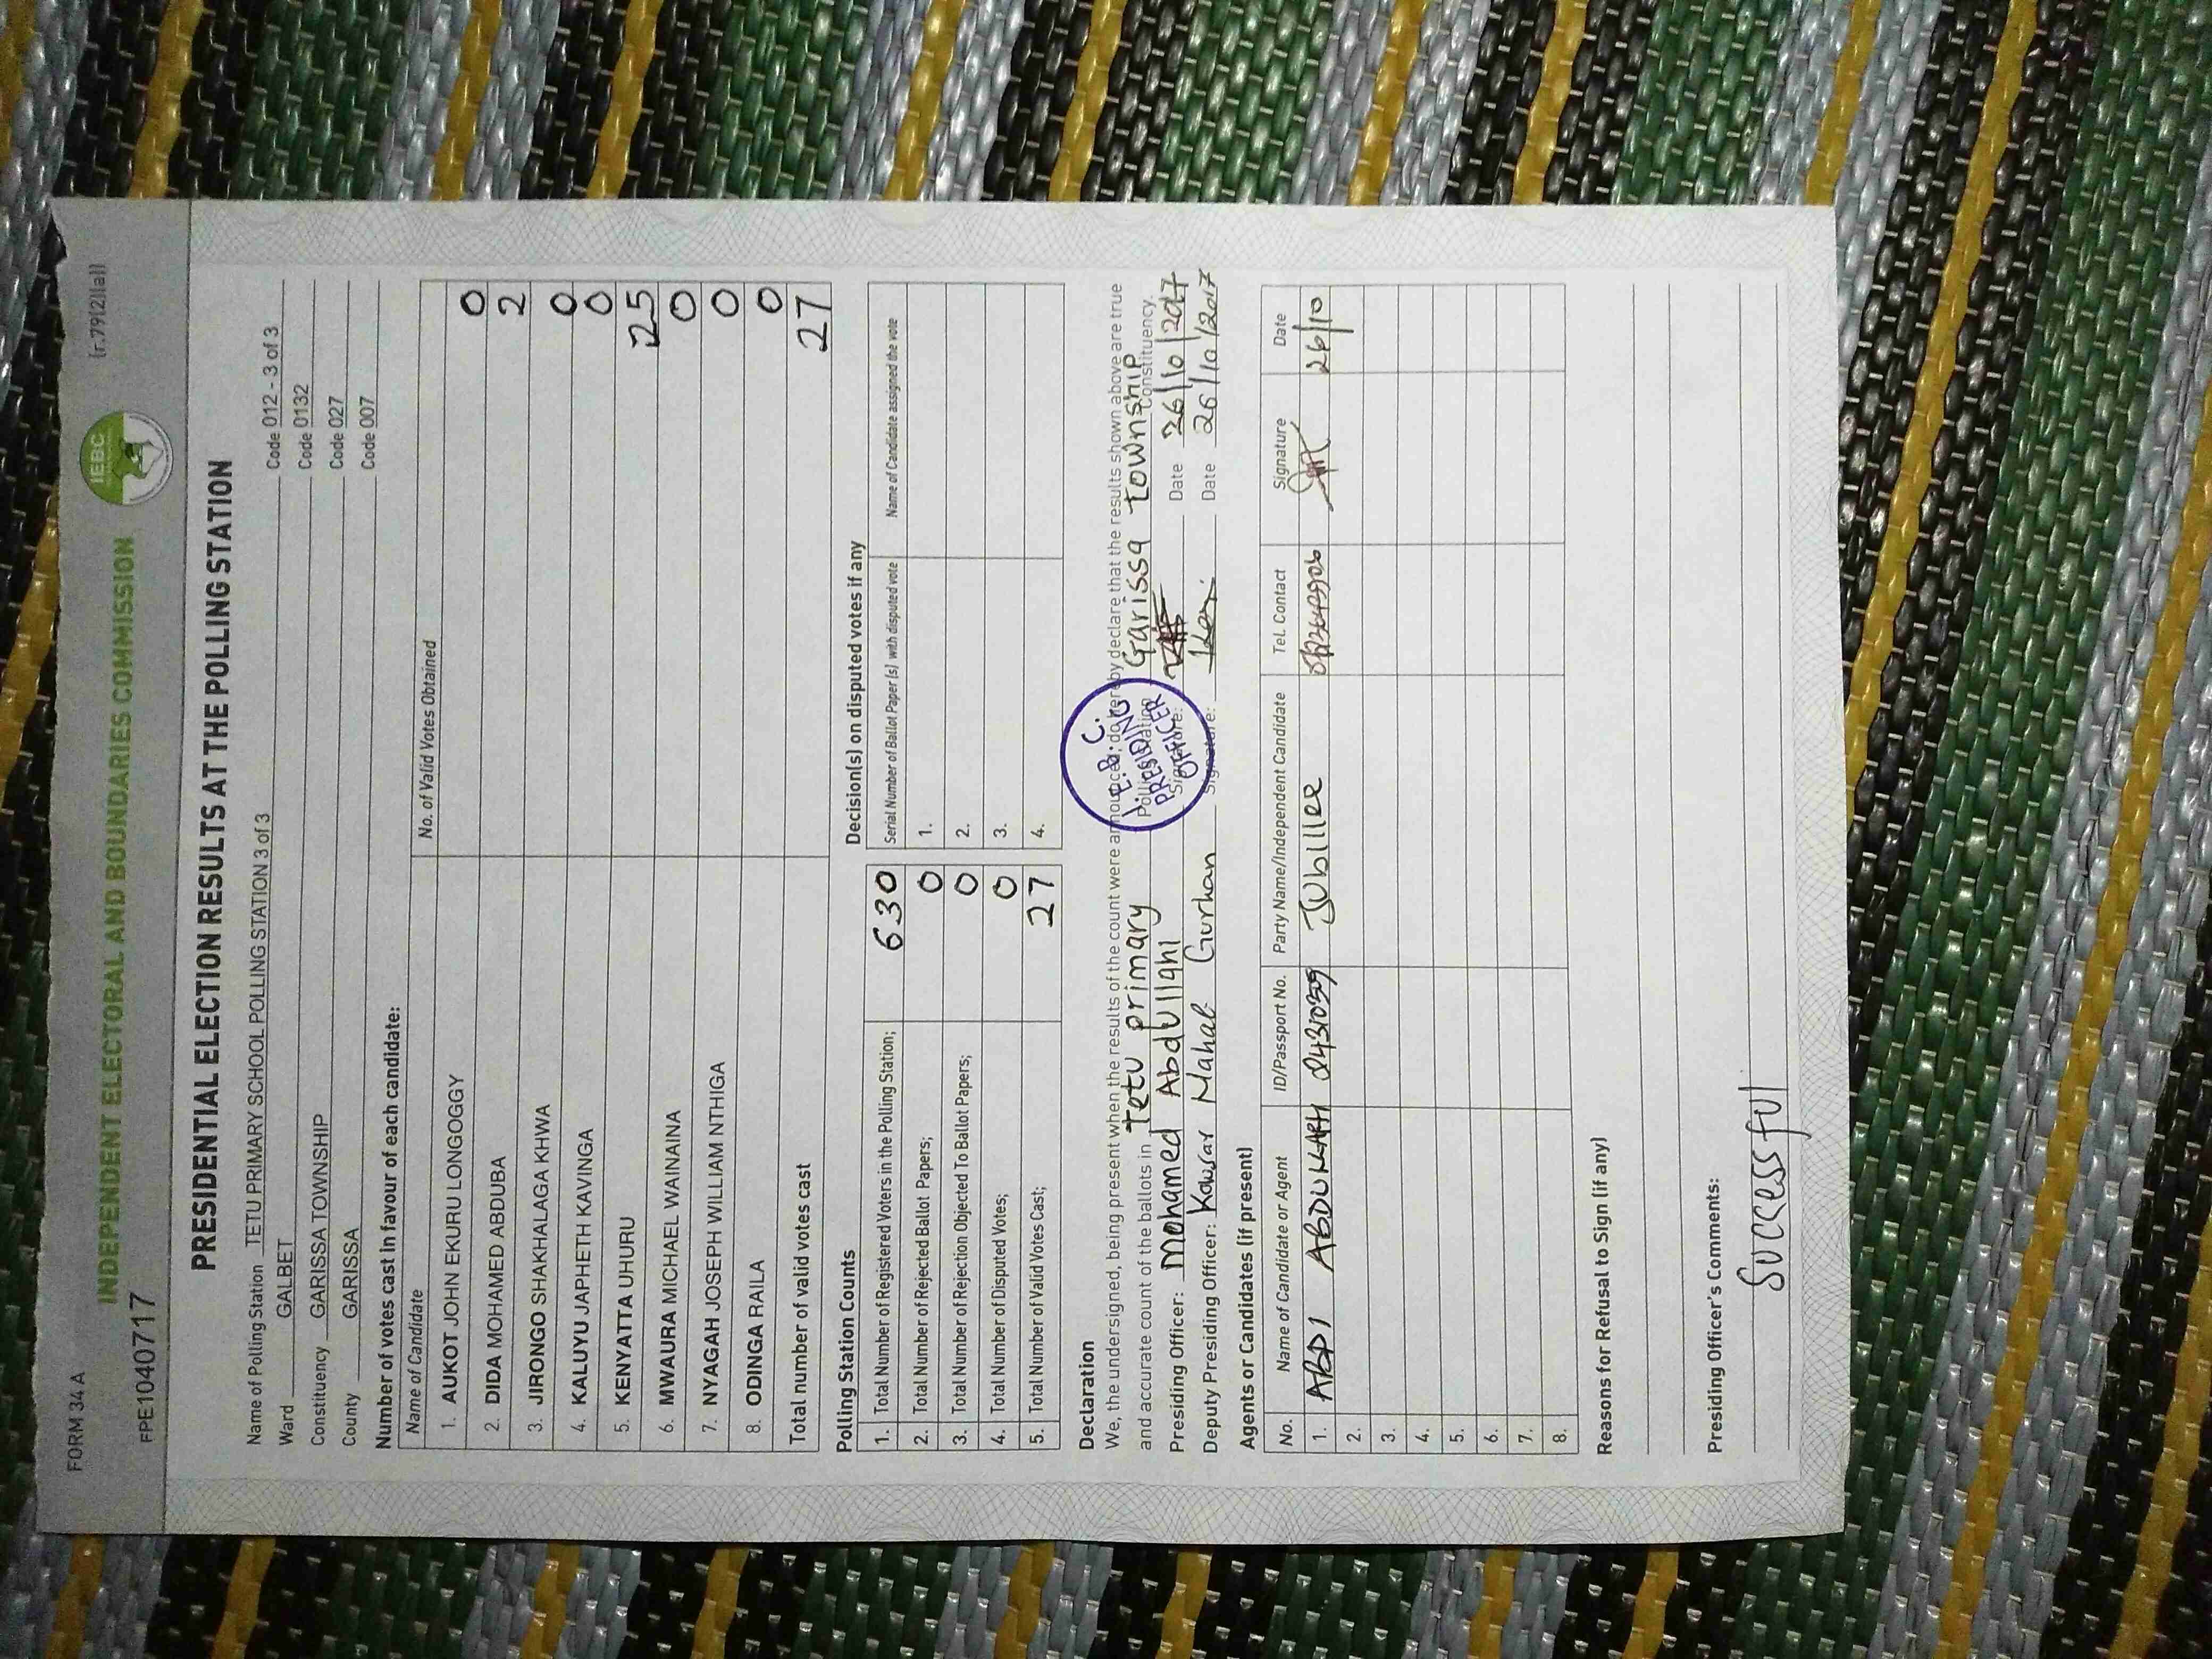 FORM 34 A
(r.79(2)(a))
INDEPENDENT ELECTORAL AND BOUNDARIES COMMISSION
IEBC
FPE1040717
PRESIDENTIAL ELECTION RESULTS AT THE POLLING STATION
Name of Polling Station TETU PRIMARY SCHOOL POLLING STATION 3 of 3 Code 012 - 3 of 3
Ward GALBET Code 0132
Constituency GARISSA TOWNSHIP Code 027
County GARISSA Code 007
Number of votes cast in favour of each candidate:
Name of Candidate No. of Valid Votes Obtained
1. AUKOT JOHN EKURU LONGOGGY 0
2. DIDA MOHAMED ABDUBA 2
3. JIRONGO SHAKHALAGA KHWA 0
4. KALUYU JAPHETH KAVINGA 0
5. KENYATTA UHURU 25
6. MWAURA MICHAEL WAINAINA 0
7. NYAGAH JOSEPH WILLIAM NTHIGA 0
8. ODINGA RAILA 0
Total number of valid votes cast 27
Polling Station Counts
1. Total Number of Registered Voters in the Polling Station; 630
2. Total Number of Rejected Ballot Papers; 0
3. Total Number of Rejection Objected To Ballot Papers; 0
4. Total Number of Disputed Votes; 0
5. Total Number of Valid Votes Cast; 27
Decision(s) on disputed votes if any
Serial Number of Ballot Paper (s) with disputed vote Name of Candidate assigned the vote
1.
2.
3.
4.
Declaration
We, the undersigned, being present when the results of the count were announced; do hereby declare that the results shown above are true
and accurate count of the ballots in Tetu primary Polling Garissa township Constituency.
Presiding Officer: Mohamed Abdullahi Signature: Date 26/10/2017
Deputy Presiding Officer: Kowsar Mahat Gurhan Signature: Date 26/10/2017
I.E.B.C.
PRESIDING
OFFICER
Agents or Candidates (if present)
No. Name of Candidate or Agent ID/Passport No. Party Name/Independent Candidate Tel. Contact Signature Date
1. ABDI Jubilee 26/10
2.
3.
4.
5.
6.
7.
8.
Reasons for Refusal to Sign (if any)
Presiding Officer's Comments:
Successful